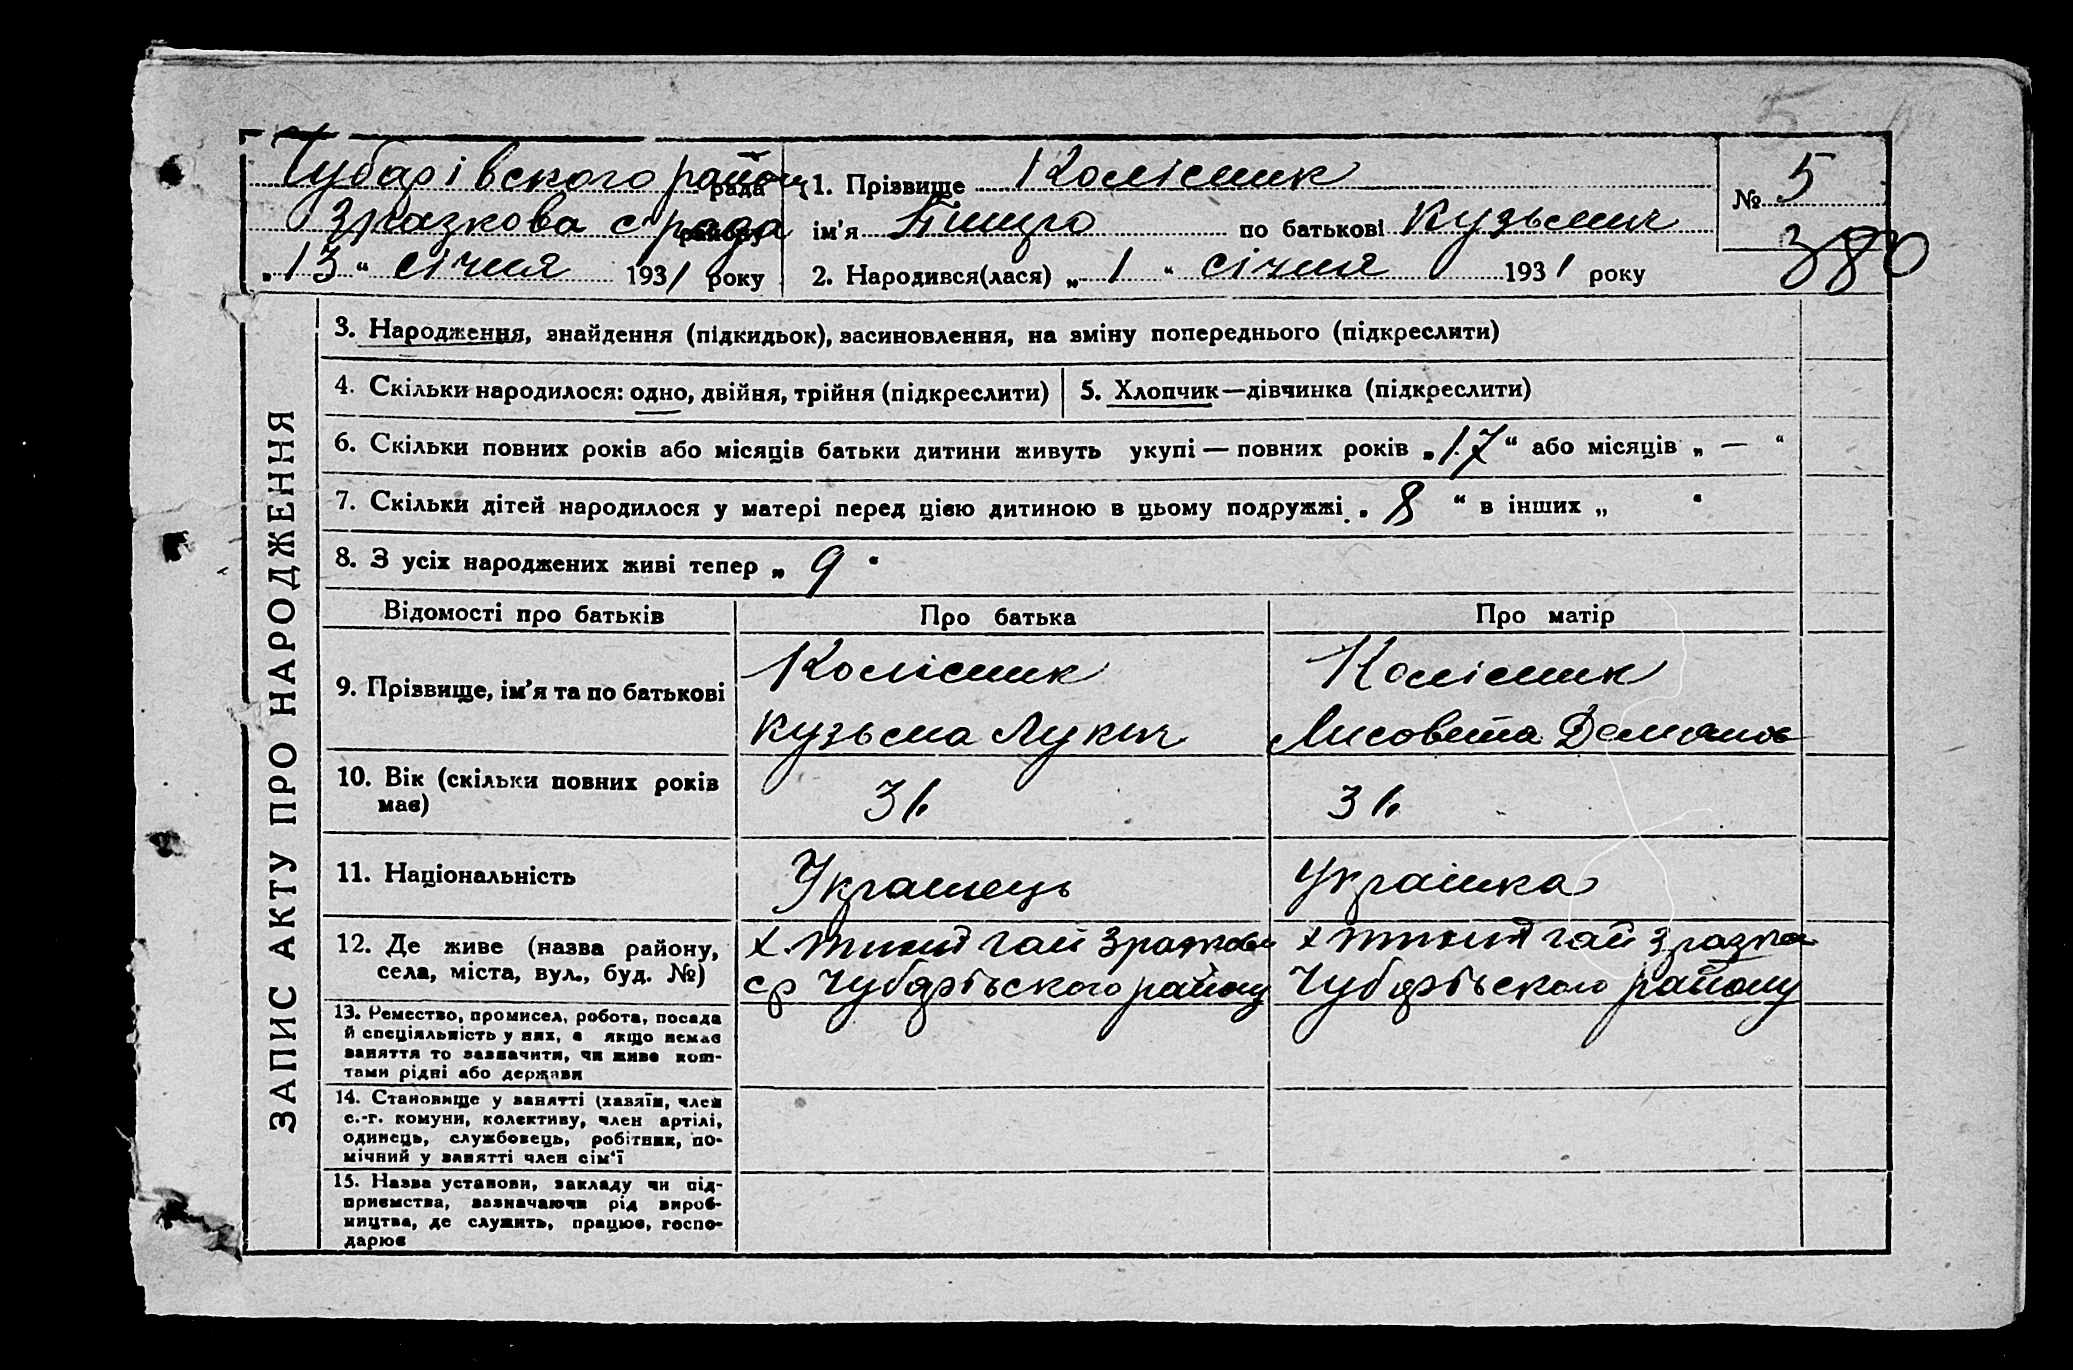 5
Чубарівского району рада
Зразкова с рада району
„13“ січня 1931 року
1. Прізвище Колісник
ім'я по батькові Кузьмич
2. Народився(лася) „1“ січня 1931 року
№ 5
380
ЗАПИС АКТУ ПРО НАРОДЖЕННЯ
3. Народження, знайдення (підкидьок), засиновлення, на зміну попереднього (підкреслити)
4. Скільки народилося: одно, двійня, трійня (підкреслити)
5. Хлопчик—дівчинка (підкреслити)
6. Скільки повних років або місяців батьки дитини живуть укупі — повних років „17“ або місяців „ — “
7. Скільки дітей народилося у матері перед цією дитиною в цьому подружжі „ 8 “ в інших „ “
8. З усіх народжених живі тепер „ 9 “
Відомості про батьків
Про батька
Про матір
9. Прізвище, ім'я та по батькові
Колісник
Кузьма Лукич
Колісник
Лисовета
10. Вік (скільки повних років
має)
31.
31.
11. Національність
Украинець
Украінка
12. Де живе (назва району,
села, міста, вул., буд. №)
х. Тихий гай Зразкова
ср Чубарівського району
х Тихий гай Зразков
Чубарівського району
13. Ремество, промисел, робота, посада
й спеціяльність у них, а якщо немає
заняття то зазначити, чи живе кош-
тами рідні або держави
14. Становище у занятті (хазяїн, член
с.-г. комуни, колективу, член артілі,
одинець, службовець, робітник, по-
мічний у занятті член сім'ї
15. Назва установи, закладу чи під-
приємства, зазначаючи рід вироб-
ництва, де служить, працює, госпо-
дарює